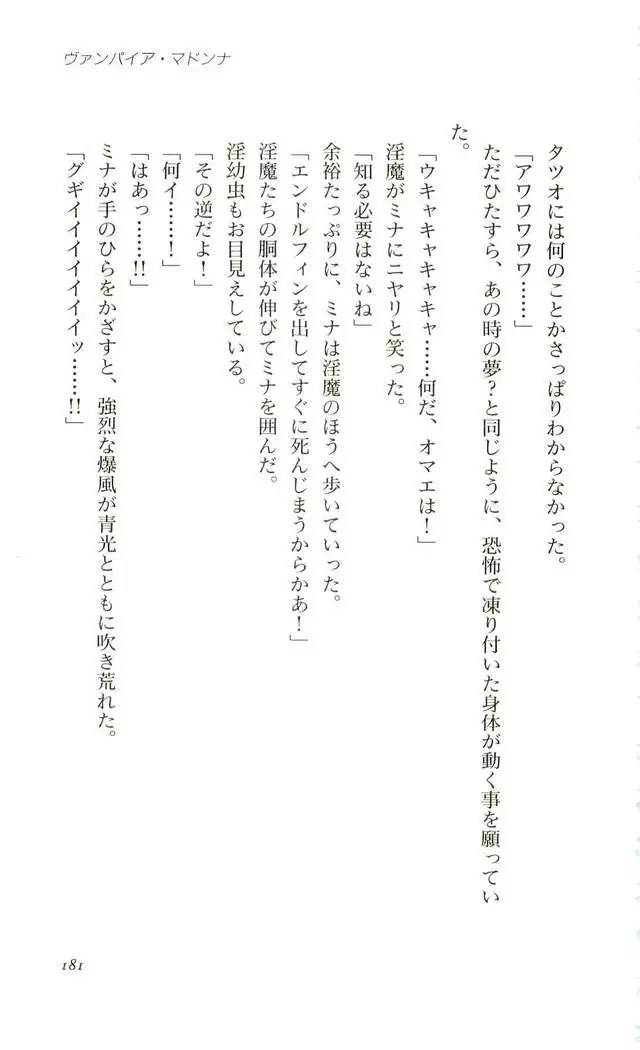 ヴァンパイア・マドンナ
タツオには何のことかさっぱりわからなかった。
「アワワワワワ……」
ただひたすら、あの時の夢?と同じように、恐怖で凍り付いた身体が動く事を願ってい
た。
「ウキャキャキャキャ……何だ、オマエは!」
淫魔がミナにニヤリと笑った。
「知る必要はないね」
余裕たっぷりに、ミナは淫魔のほうへ歩いていった。
「エンドルフィンを出してすぐに死んじまうからかあ!」
淫魔たちの胴体が伸びてミナを囲んだ。
淫幼虫もお目見えしている。
「その逆だよ!」
「何イ……!」
「はあっ……!!」
ミナが手のひらをかざすと、強烈な爆風が青光とともに吹き荒れた。
「グギイイイイイイイッ……!!」
181